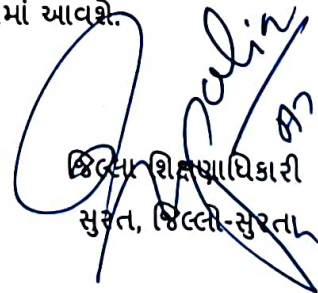 માં આવશે.
જિલ્લા શિક્ષણાધિકારી
સુરત, જિલ્લો-સુરત